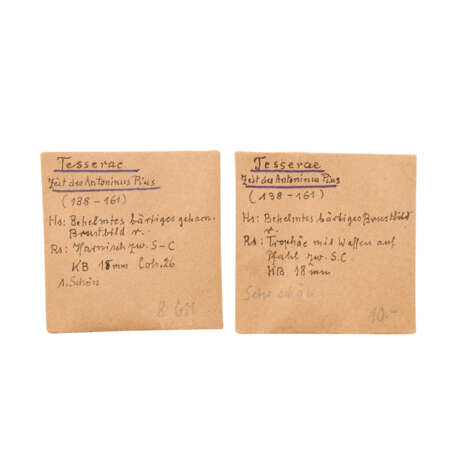 Tesserae
Zeit des Antoninus Pius
(138-161)
Hs: Behelmtes bärtiges geharn.
Brustbild r.
Rs: Harnisch zw. S-C
KB 18 mm Coh. 26
1. Schön
8 GM
Tesserae
Zeit des Antoninus Pius
(138-161)
Hs: Behelmtes bärtiges Brustbild
r.
Rs: Trophäe mit Waffen auf
Pfahl zw. S.C.
KB 18 mm
Sehr schön
10.-